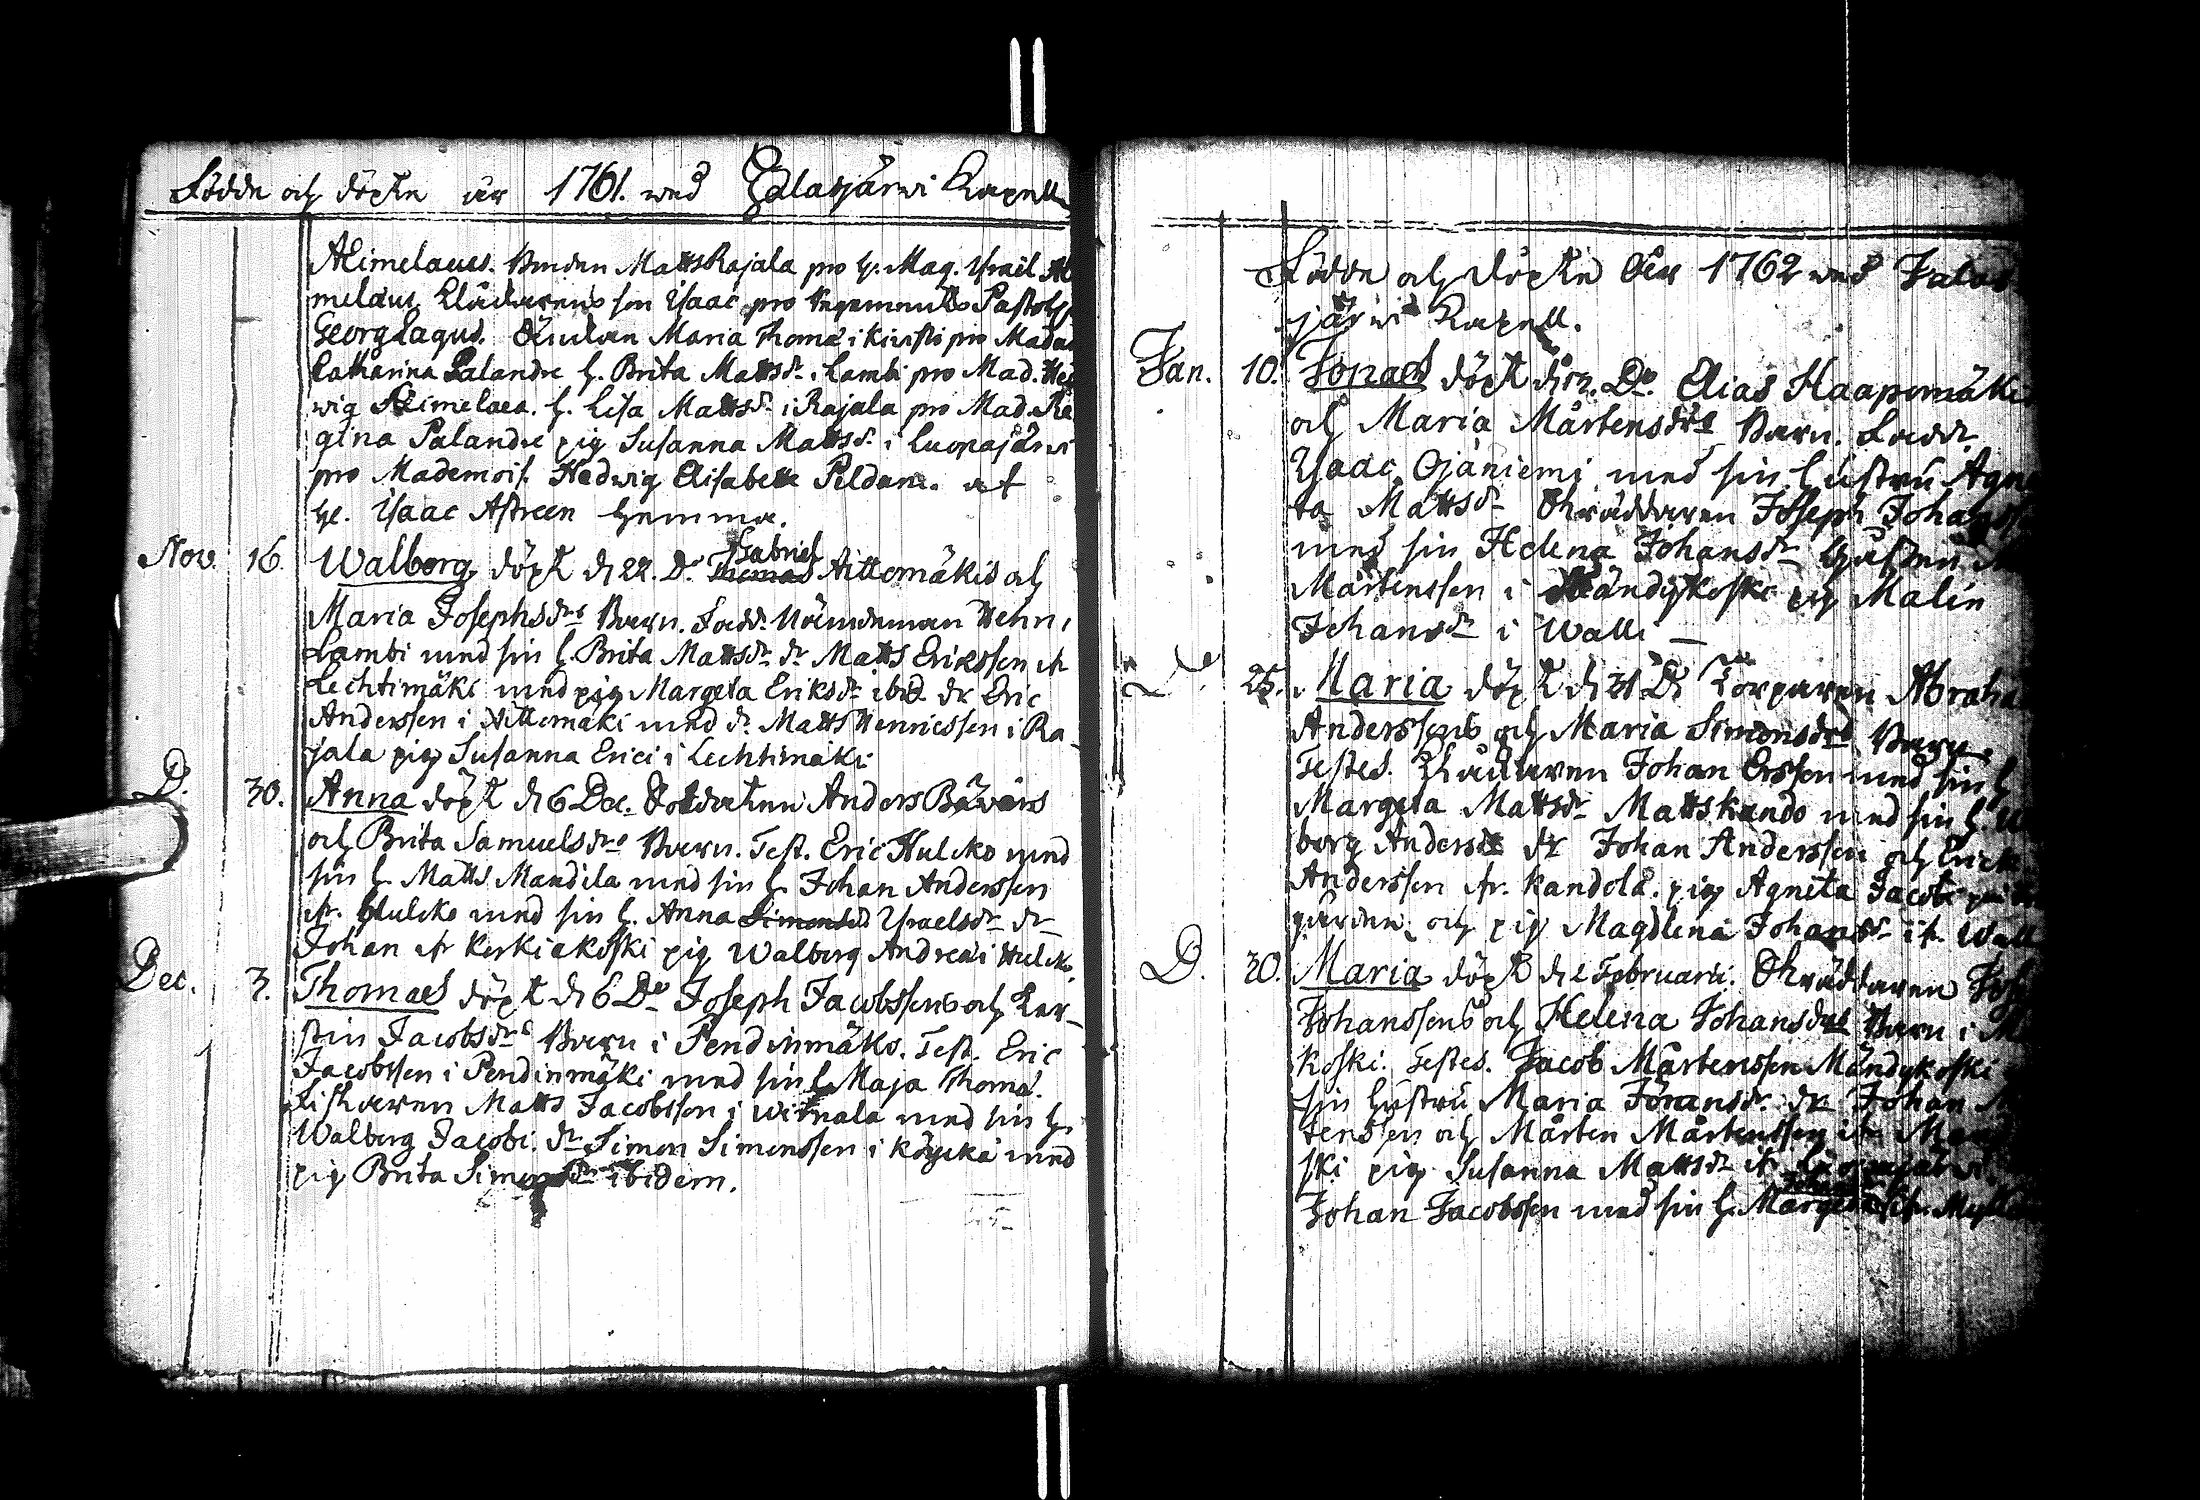 Födde och döpte år 1761. wid Jalasjärwi Kapell
Alimelaeus. Bonden Matts Rajala pro H. Mag. Israil
melaeus, Klockarens son Isaac pro Regements Pastor
Georg Lagus. Änckan Maria Thomæ i Kirsti pro Madam
Catharina Palandre h. Brita Mattsdr. Lambi pro Mad.
wig Alimelaea. h. Lisa Mattsdr i Rajala pro Mad. Re
gina Palandre pig Susanna Mattsd. i Luopajärwi
pro Mademois. Hedwig Elisabeth Peldan. at
H. Isaac Astreen hemma.
Nov. 16. Walborg döpt d 22. Do Thomas Gabriel Aittomäkis och
Maria Josephsdrs Barn. Fadd. Nämdeman Hehn.
Lambi med sin h. Brita Mattsdr dr Matts Erikssen it
Lechtimäki med pig Margeta Eriksdr ibid. dr Eric
Anderssen i Aittomäki med dr Matts Henricssen i Ra
jala pig Susanna Erici i Lechtimäki
D. 30. Anna döpt d 6 Dec. Soldaten Anders Bävers
och Brita Samuelsdrs Barn. Test. Eric Hulcko med
sin h. Matts Mandila med sin h. Johan Anderssen
it. Hulcko med sin h. Anna Simonsd Israelsdr dr
Johan it Kerkiekoski pig Walborg Andreæ i Hulcko.
Dec. 3. Thomas döpt d 6 Do Joseph Jacobssens och Ker-
stin Jacobsdrs Barn i Pendinmäki. Test. Eric
Jacobssen i Pendinmäki med sin h. Maja Thomæ.
Fiskaren Matts Jacobssen i Witnala med sin h.
Walborg Jacobi. dr Simon Simonssen i Köyckä med
pig Brita Simonsdr ibidem.
Födde och döpte Åhr 1762 wid Jalas
järwi Kapell.
Jan. 10. Jonas döpt d 12. Do. Elias Haapomäki
och Maria Mårtensdrs Barn. Fadd.
Isaac Ojaniemi med sin hustru Agne
ta Mattsdr Skräddaren Joseph Johanss
med sin Helena Johansdr
Mårtenssen i Mändykoski pig Malin
Johansdr i Walli
Do 25. Maria döpt d 31 Do Torparen Abraha
Anderssens och Maria Simonsdrs Barn.
Testes. Klockaren Johan Erssen med sin h
Margeta Mattsdr Matts Kando med sin h.
borg Andersdr dr Johan Anderssen och Erick
Anderssen it. Kandola. pig Agneta Jacobi
gården, och pig Magdlena Johansdr it. Wall
D. 30. Maria döpt d 2 Februarii. Skräddaren
Johanssens och Helena Johansdrs Barn i
koski. Testes. Jacob Mårtenssen Mändykoski
sin hustru Maria Jöransdr. dr Johan
tenssen och Mårten Mårtenssen it.
ski pig Susanna Mattsdr it Luopajärwi
Johan Jacobssen med sin h. Margeta it.